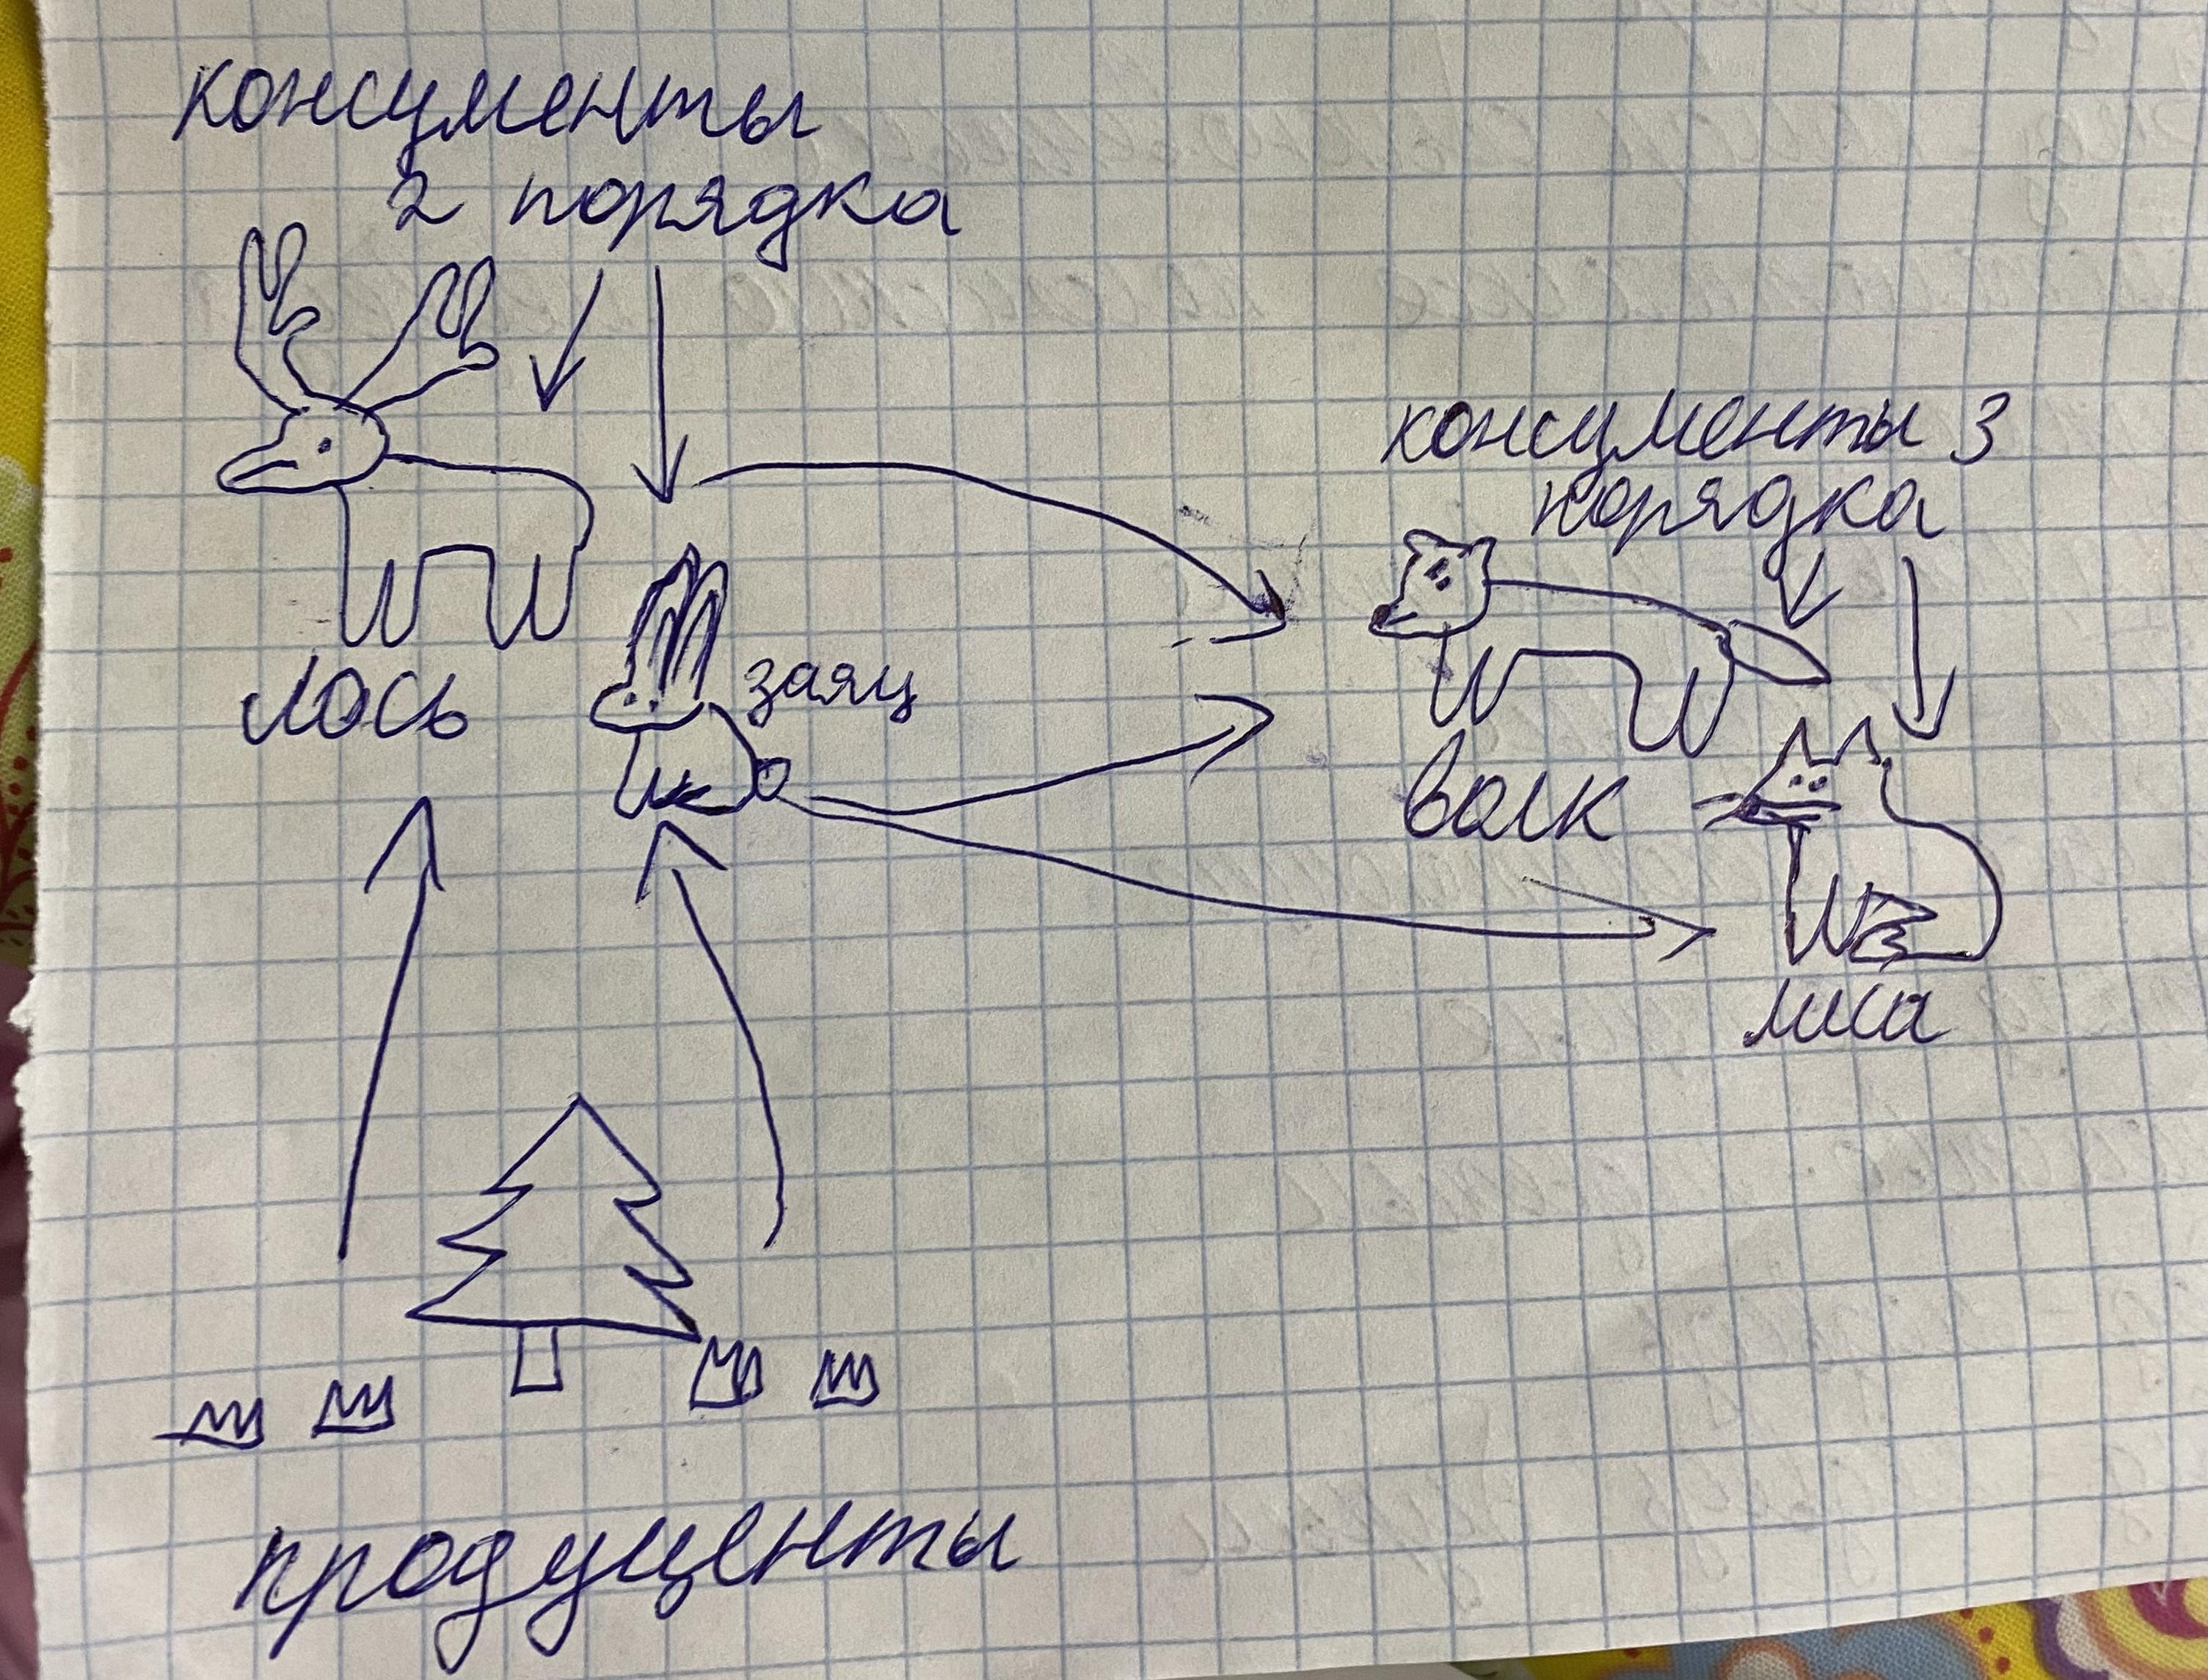 консументы
2 порядка
консументы 3
порядка
лось
заяц
волк
лиса
продуценты